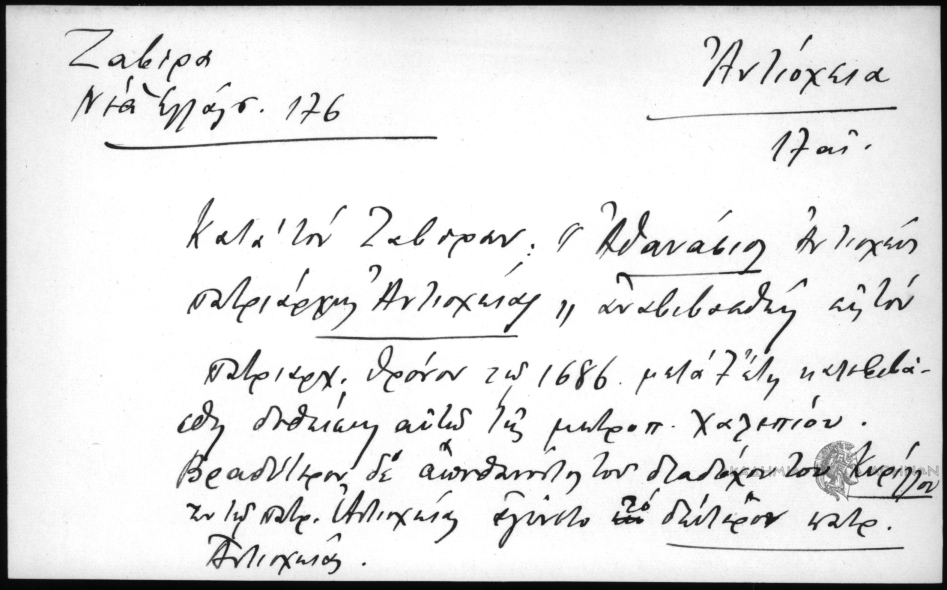 Ζαβίρα
Νέα Ἑλλάς σ. 176
Ἀντιόχεια
17 αἰ.
Κατὰ τὸν Ζαβίραν: "Ἀθανάσιος Ἀντιοχεὺς
πατριάρχης Ἀντιοχείας" ἀνεβιβάσθη εἰς τὸν
πατριαρχ. θρόνον τῷ 1686. μετὰ 7 ἔτη κατεβιβά-
σθη δοθείσης αὐτῷ τῆς μητροπ. Χαλεπίου.
Βραδύτερον δὲ ἀποθανόντος τοῦ διαδόχου του Κυρίλλου
πατρ. Ἀντιοχείας ἐγένετο τὸ δεύτερον πατρ.
Ἀντιοχείας.